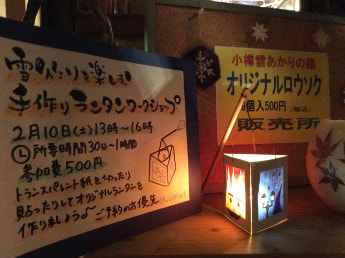 雪あかりを楽しむ
手作りランタンワークショップ
2月10日(土)13時~16時
所要時間30分~1時間
参加費500円
トランスパレント紙を切ったり
貼ったりしてオリジナルランタンを
作りましょう♪~ご予約の方優先
小樽雪あかりの路
オリジナルロウソク
個入500円
販売所